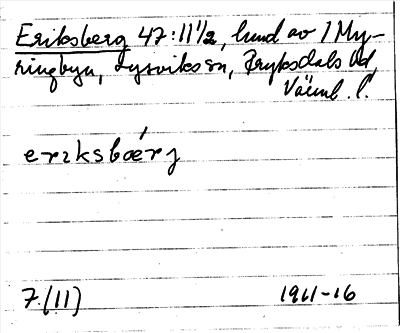 Eriksberg 47:11 1/2, hmd av 1 My-
ringbyn, Lysviks sn, Fryksdals hd,
Värml. l.
erıksbærj
7.(11) 1911-16